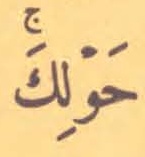 حَوْلِكَۚ